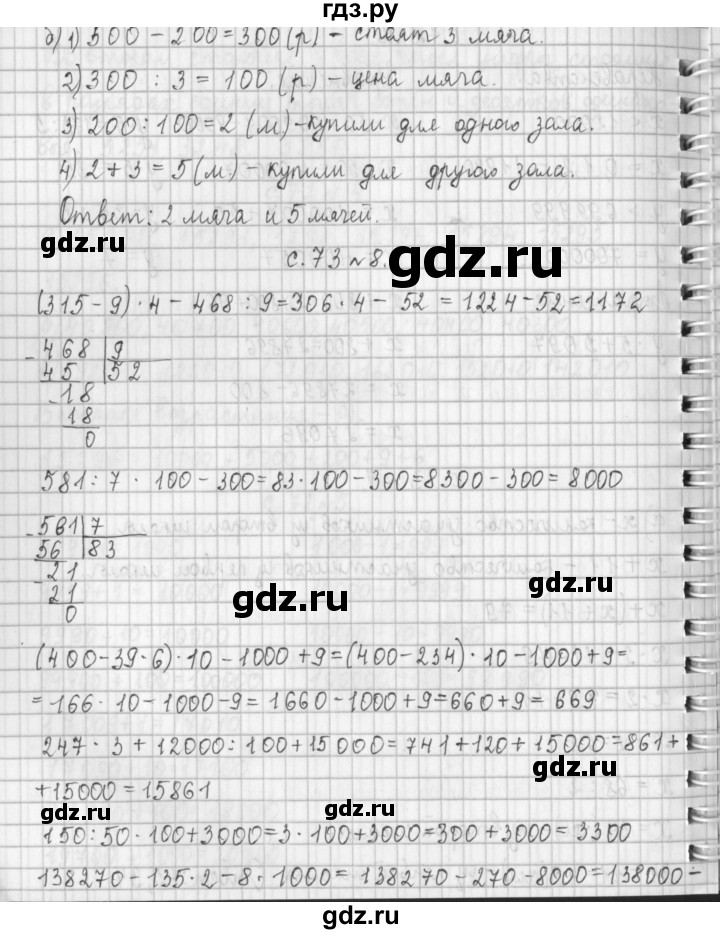 гдз.ру
б) 1) 500 - 200 = 300 (р) - стоят 3 мяча.
2) 300 : 3 = 100 (р) - цена мяча.
3) 200 : 100 = 2 (м) - купили для одного зала.
4) 2 + 3 = 5 (м) - купили для другого зала.
Ответ: 2 мяча и 5 мячей.
gdz.ru
с. 73 №8.
gdz.ru
(315 - 9) · 4 - 468 : 9 = 306 · 4 - 52 = 1224 - 52 = 1172
- 468 | 9
45 | 52
- 18
18
0
581 : 7 · 100 - 300 = 83 · 100 - 300 = 8300 - 300 = 8000
- 581 | 7
56 | 83
- 21
21
0
gdz.ru
gdz.ru
(400 - 39 · 6) · 10 - 1000 + 9 = (400 - 234) · 10 - 1000 + 9 =
= 166 · 10 - 1000 - 9 = 1660 - 1000 + 9 = 660 + 9 = 669
247 · 3 + 12000 : 100 + 15000 = 741 + 120 + 15000 = 861 +
gdz.ru
+ 15000 = 15861
gdz.ru
gdz.ru
150 : 50 · 100 + 3000 = 3 · 100 + 3000 = 300 + 3000 = 3300
138270 - 135 · 2 - 8 · 1000 = 138270 - 270 - 8000 = 138000 -
gdz.ru